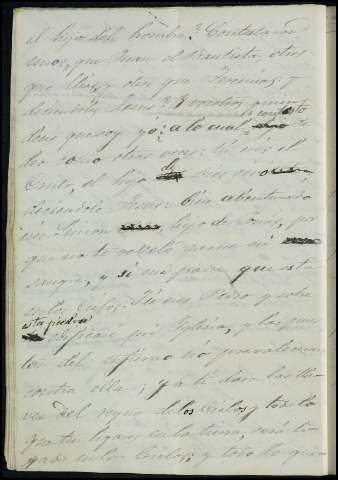 el hijo del hombre? Contestaron
unos, que Juan el Bautista, otros
que Elias, y otros que Jeremias, y
diciendoles Jesus? Y vosotros quien
contesto
deus que soy yó? a lo cual
Pedro como otras veces: tú eres el
Cristo, el hijo de Dios vivo
diciendole Jesus: Bien abenturado
eres Simon hijo de Jonás, por
que no te rebeló carne ni
sangre, y si mi padre que está
en los Cielos. Tú eres Pedro y sobre
esta piedra
edificaré mi Yglesia, y las puer
tas del infierno no prevaleceran
contra ella; y á tí daré las lla
ves del reyno de los Cielos y todo lo
que tu ligares en la tierra, será li
gado en los Cielos; y todo lo que